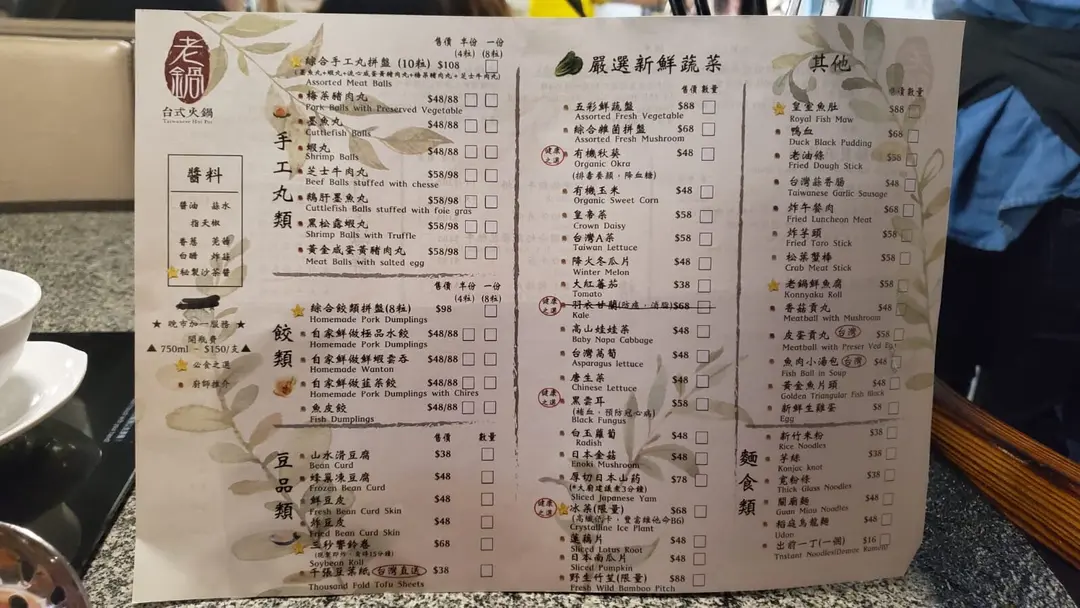 老鍋
台式火鍋
Taiwanese Hot Pot
醬料
醬油 蒜水
指天椒
香蔥 芫荽
白醋 炸蒜
秘製沙茶醬
★ 晚市加一服務 ★
開瓶費
▲ 750ml - $150/支 ▲
必食之選
廚師推介
手工丸類
售價 半份 一份
(4粒) (8粒)
綜合手工丸拼盤 (10粒) $108
Assorted Meat Balls
梅菜豬肉丸 $48/88
Pork Balls with Preserved Vegetable
墨魚丸 $48/88
Cuttlefish Balls
蝦丸 $48/88
Shrimp Balls
芝士牛肉丸 $58/98
Beef Balls stuffed with chesse
鵝肝墨魚丸 $58/98
Cuttlefish Balls stuffed with foie gras
黑松露蝦丸 $58/98
Shrimp Balls with Truffle
黃金咸蛋黃豬肉丸 $58/98
Meat Balls with salted egg
餃類
售價 半份 一份
(4粒) (8粒)
綜合餃類拼盤(8粒) $98
Homemade Pork Dumplings
自家鮮做極品水餃 $48/88
Homemade Pork Dumplings
自家鮮做鮮蝦雲吞 $48/88
Homemade Wanton
自家鮮做韮菜餃 $48/88
Homemade Pork Dumplings with Chires
魚皮餃 $48/88
Fish Dumplings
豆品類
售價 數量
山水滑豆腐 $38
Bean Curd
蜂巢凍豆腐 $48
Frozen Bean Curd
鮮豆皮 $48
Fresh Bean Curd Skin
炸豆皮 $48
Fried Bean Curd Skin
三秒響鈴卷 $68
Soybean Roll
千張豆葉紙 台灣直送 $38
Thousand Fold Tofu Sheets
嚴選新鮮蔬菜
售價 數量
五彩鮮蔬盤 $88
Assorted Fresh Vegetable
綜合雜菌拼盤 $68
Assorted Fresh Mushroom
健康之選 有機秋葵 $48
Organic Okra
(排毒養顏，降血糖)
有機玉米 $48
Organic Sweet Corn
皇帝菜 $58
Crown Daisy
台灣A菜 $58
Taiwan Lettuce
降火冬瓜片 $48
Winter Melon
大紅蕃茄 $38
Tomato
健康之選 羽衣甘蘭(防癌，消脂) $68
Kale
高山娃娃菜 $48
Baby Napa Cabbage
台灣萵筍 $48
Asparagus lettuce
唐生菜 $48
Chinese Lettuce
健康之選 黑雲耳 $58
(補血，預防冠心病)
Black Fungus
白玉蘿蔔 $48
Radish
日本金菇 $48
Enoki Mushroom
厚切日本山藥 $78
(*大廚建議煮3分鐘)
Sliced Japanese Yam
健康之選 冰菜(限量) $68
(高纖低卡，豐富維他命B6)
Crystalline Ice Plant
蓮藕片 $48
Sliced Lotus Root
日本南瓜片 $48
Sliced Pumpkin
野生竹笙(限量) $88
Fresh Wild Bamboo Pitch
其他
售價 數量
皇室魚肚 $88
Royal Fish Maw
鴨血
Duck Black Pudding
老油條 $58
Fried Dough Stick
台灣蒜香腸 $48
Taiwanese Garlic Sausage
炸午餐肉 $68
Fried Luncheon Meat
炸芋頭 $58
Fried Taro Stick
松葉蟹棒 $58
Crab Meat Stick
老鍋鮮魚腐 $58
Konnyaku Roll
香菇貢丸 $48
Meatball with Mushroom
皮蛋貢丸 台灣 $58
Meatball with Preser Ved Egg
魚肉小湯包 台灣 $58
Fish Ball in Soup
黃金魚片頭 $48
Golden Triangular Fish Block
新鮮生雞蛋 $8
Egg
麵食類
新竹米粉 $38
Rice Noodles
芋絲 $38
Konjac knot
寬粉條 $38
Thick Glass Noodles
關廟麵 $48
Guan Miau Noodles
稻庭烏龍麵 $48
Udon
出前一丁(一個) $16